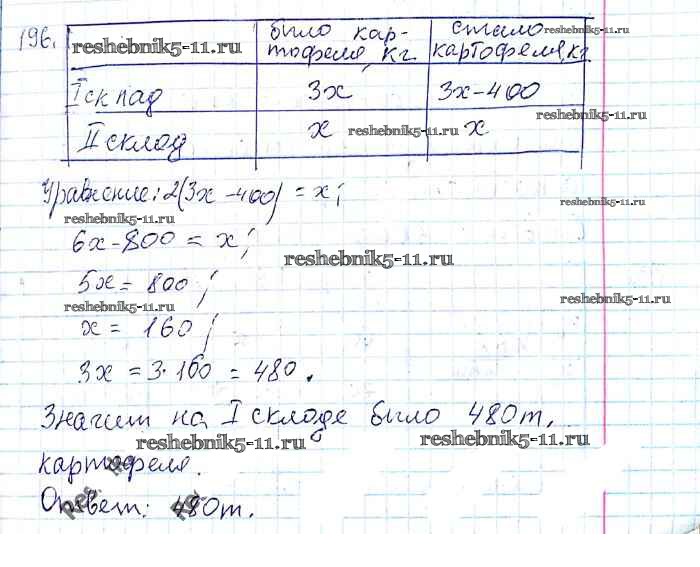 196.
reshebnik5-11.ru
было кар-
тофеля, кг
стало
картофеля, кг
I склад
3x
3x-400
reshebnik5-11.ru
II склад
x
reshebnik5-11.ru
x
Уравнение: 2(3x-400) = x;
reshebnik5-11.ru
6x-800 = x;
reshebnik5-11.ru
5x = 800;
reshebnik5-11.ru
reshebnik5-11.ru
x = 160;
3x = 3·160 = 480.
Значит на I складе было 480т.
reshebnik5-11.ru
reshebnik5-11.ru
картофеля.
Ответ: 480т.